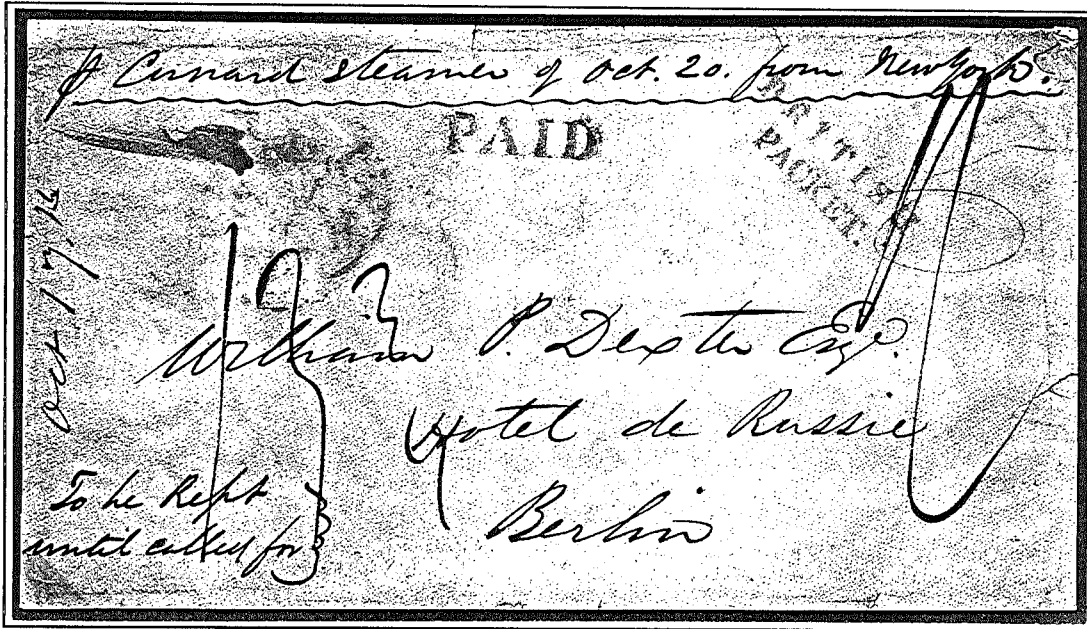 ⅌ Cunard steamer of Oct. 20. from New York.
PAID
BRITISH
PACKET.
William P. Dexter Esqr.
Hotel de Russie
Berlin
To be Kept
until called for
Oct 17.